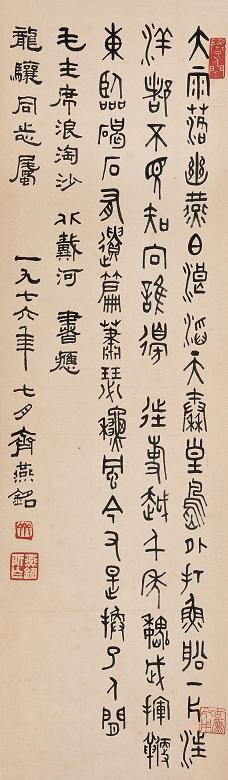 大雨落幽燕白浪滔天秦皇島外打魚船一片汪
洋都不見知向誰邊往事越千年魏武揮鞭
東臨碣石有遺篇蕭瑟秋風今又是換了人間
毛主席浪淘沙北戴河書應
龍驤同志屬一九七六年七月齊燕銘